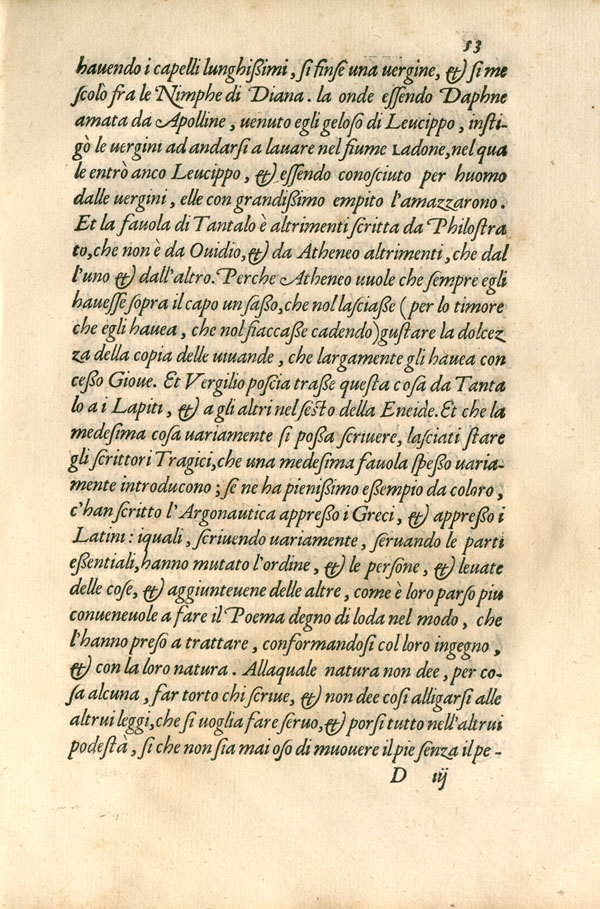 53
hauendo i capelli lunghißimi, si finse una uergine, & si me
scolò fra le Nimphe di Diana. la onde essendo Daphne
amata da Apolline, uenuto egli geloso di Leucippo, insti-
gò le uergini ad andarsi a lauare nel fiume Ladone, nel qua
le entrò anco Leucippo, & essendo conosciuto per huomo
dalle uergini, elle con grandißimo empito l'amazzarono.
Et la fauola di Tantalo è altrimenti scritta da Philostra
to, che non è da Ouidio, & da Atheneo altrimenti, che dal
l'uno & dall'altro. Perche Atheneo uuole che sempre egli
hauesse sopra il capo un saßo, che nol lasciaße (per lo timore
che egli hauea, che nol fiaccaße cadendo) gustare la dolcez
za della copia delle uiuande, che largamente gli hauea con
ceßo Gioue. Et Vergilio poscia traße questa cosa da Tanta
lo a i Lapiti, & a gli altri nel sesto della Eneide. Et che la
medesima cosa uariamente si poßa scriuere, lasciati stare
gli scrittori Tragici, che una medesima fauola speßo uaria-
mente introducono; se ne ha pienißimo eßempio da coloro,
c'han scritto l'Argonautica appreßo i Greci, & appreßo i
Latini: iquali, scriuendo uariamente, seruando le parti
eßentiali, hanno mutato l'ordine, & le persone, & leuate
delle cose, & aggiunteuene delle altre, come è loro parso piu
conueneuole a fare il Poema degno di loda nel modo, che
l'hanno preso a trattare, conformandosi col loro ingegno,
& con la loro natura. Allaquale natura non dee, per co-
sa alcuna, far torto chi scriue, & non dee cosi alligarsi alle
altrui leggi, che si uoglia fare seruo, & porsi tutto nell'altrui
podestà, si che non sia mai oso di muouere il pie senza il pe-
D iij